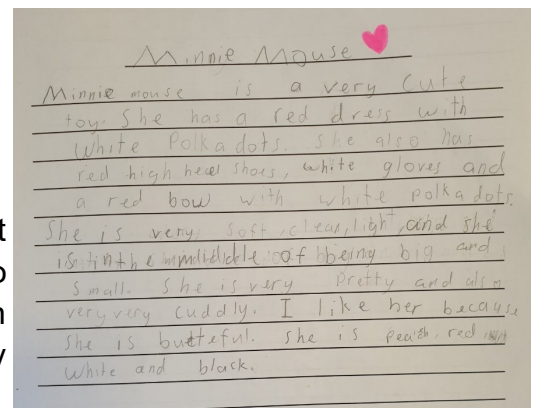 Minnie Mouse
Minnie mouse is a very cute
toy. She has a red dress with
white Polkadots. She also has
red high heel shoes, white gloves and
a red bow with white polkadots.
She is very soft, clean, light, and she
is in the middle of being big and
small. She is very Pretty and also
very very cuddly. I like her because
she is butteful. she is peaish, red
white and black.
t
o
n
y